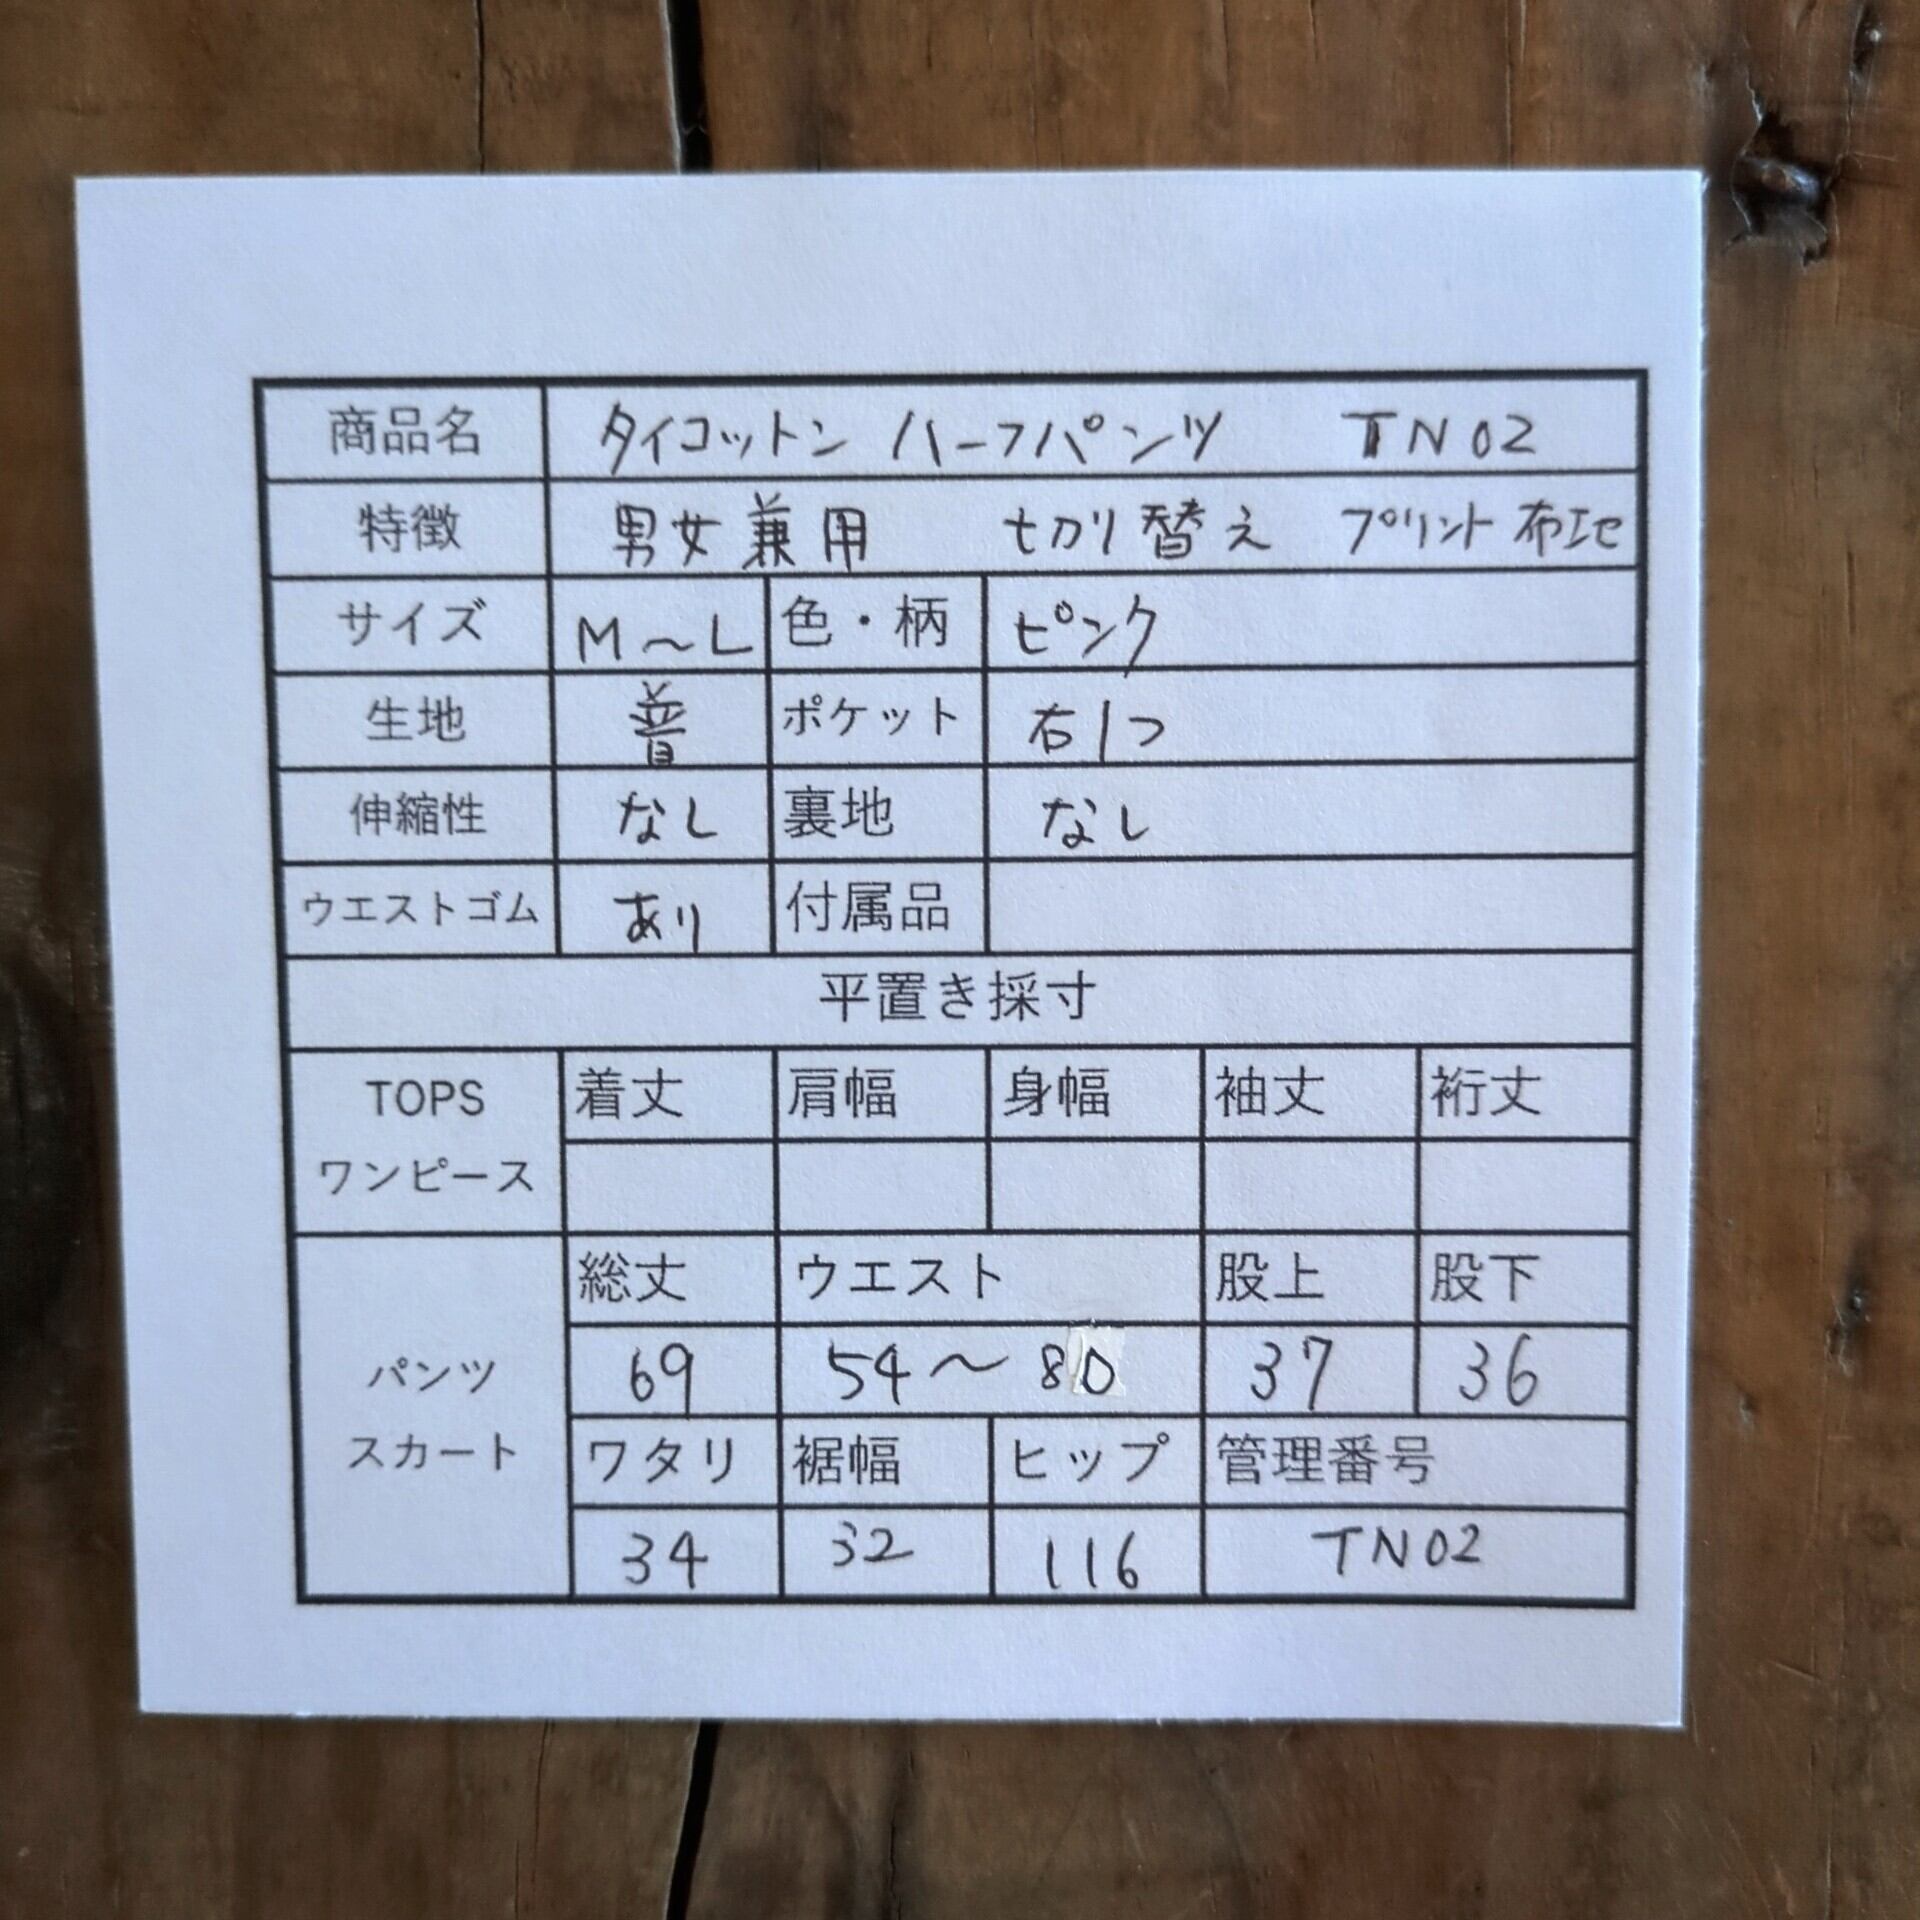 商品名 タイコットン ハーフパンツ TN02
特徴 男女兼用 切り替え プリント布地
サイズ M〜L 色・柄 ピンク
生地 普 ポケット 右1つ
伸縮性 なし 裏地 なし
ウエストゴム あり 付属品
平置き採寸
TOPS 着丈 肩幅 身幅 袖丈 裄丈
ワンピース
総丈 ウエスト 股上 股下
パンツ 69 54〜80 37 36
スカート ワタリ 裾幅 ヒップ 管理番号
34 32 116 TN02